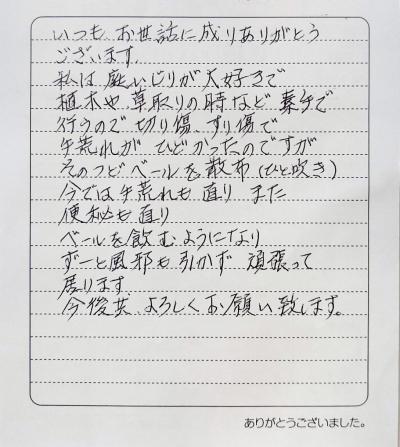 いつも お世話に成りありがとう
ございます.
私は 庭いじりが大好きで
植木や 草取りの時など 素手で
行うので 切り傷、すり傷で
手荒れが ひどかったのですが
そのつど ベールを散布(ひと吹き)
今では手荒れも 直り また
便秘も直り
ベールを飲むようになり
ずーと風邪も引かず 頑張って
居ります
今後共 よろしくお願い致します。
ありがとうございました。